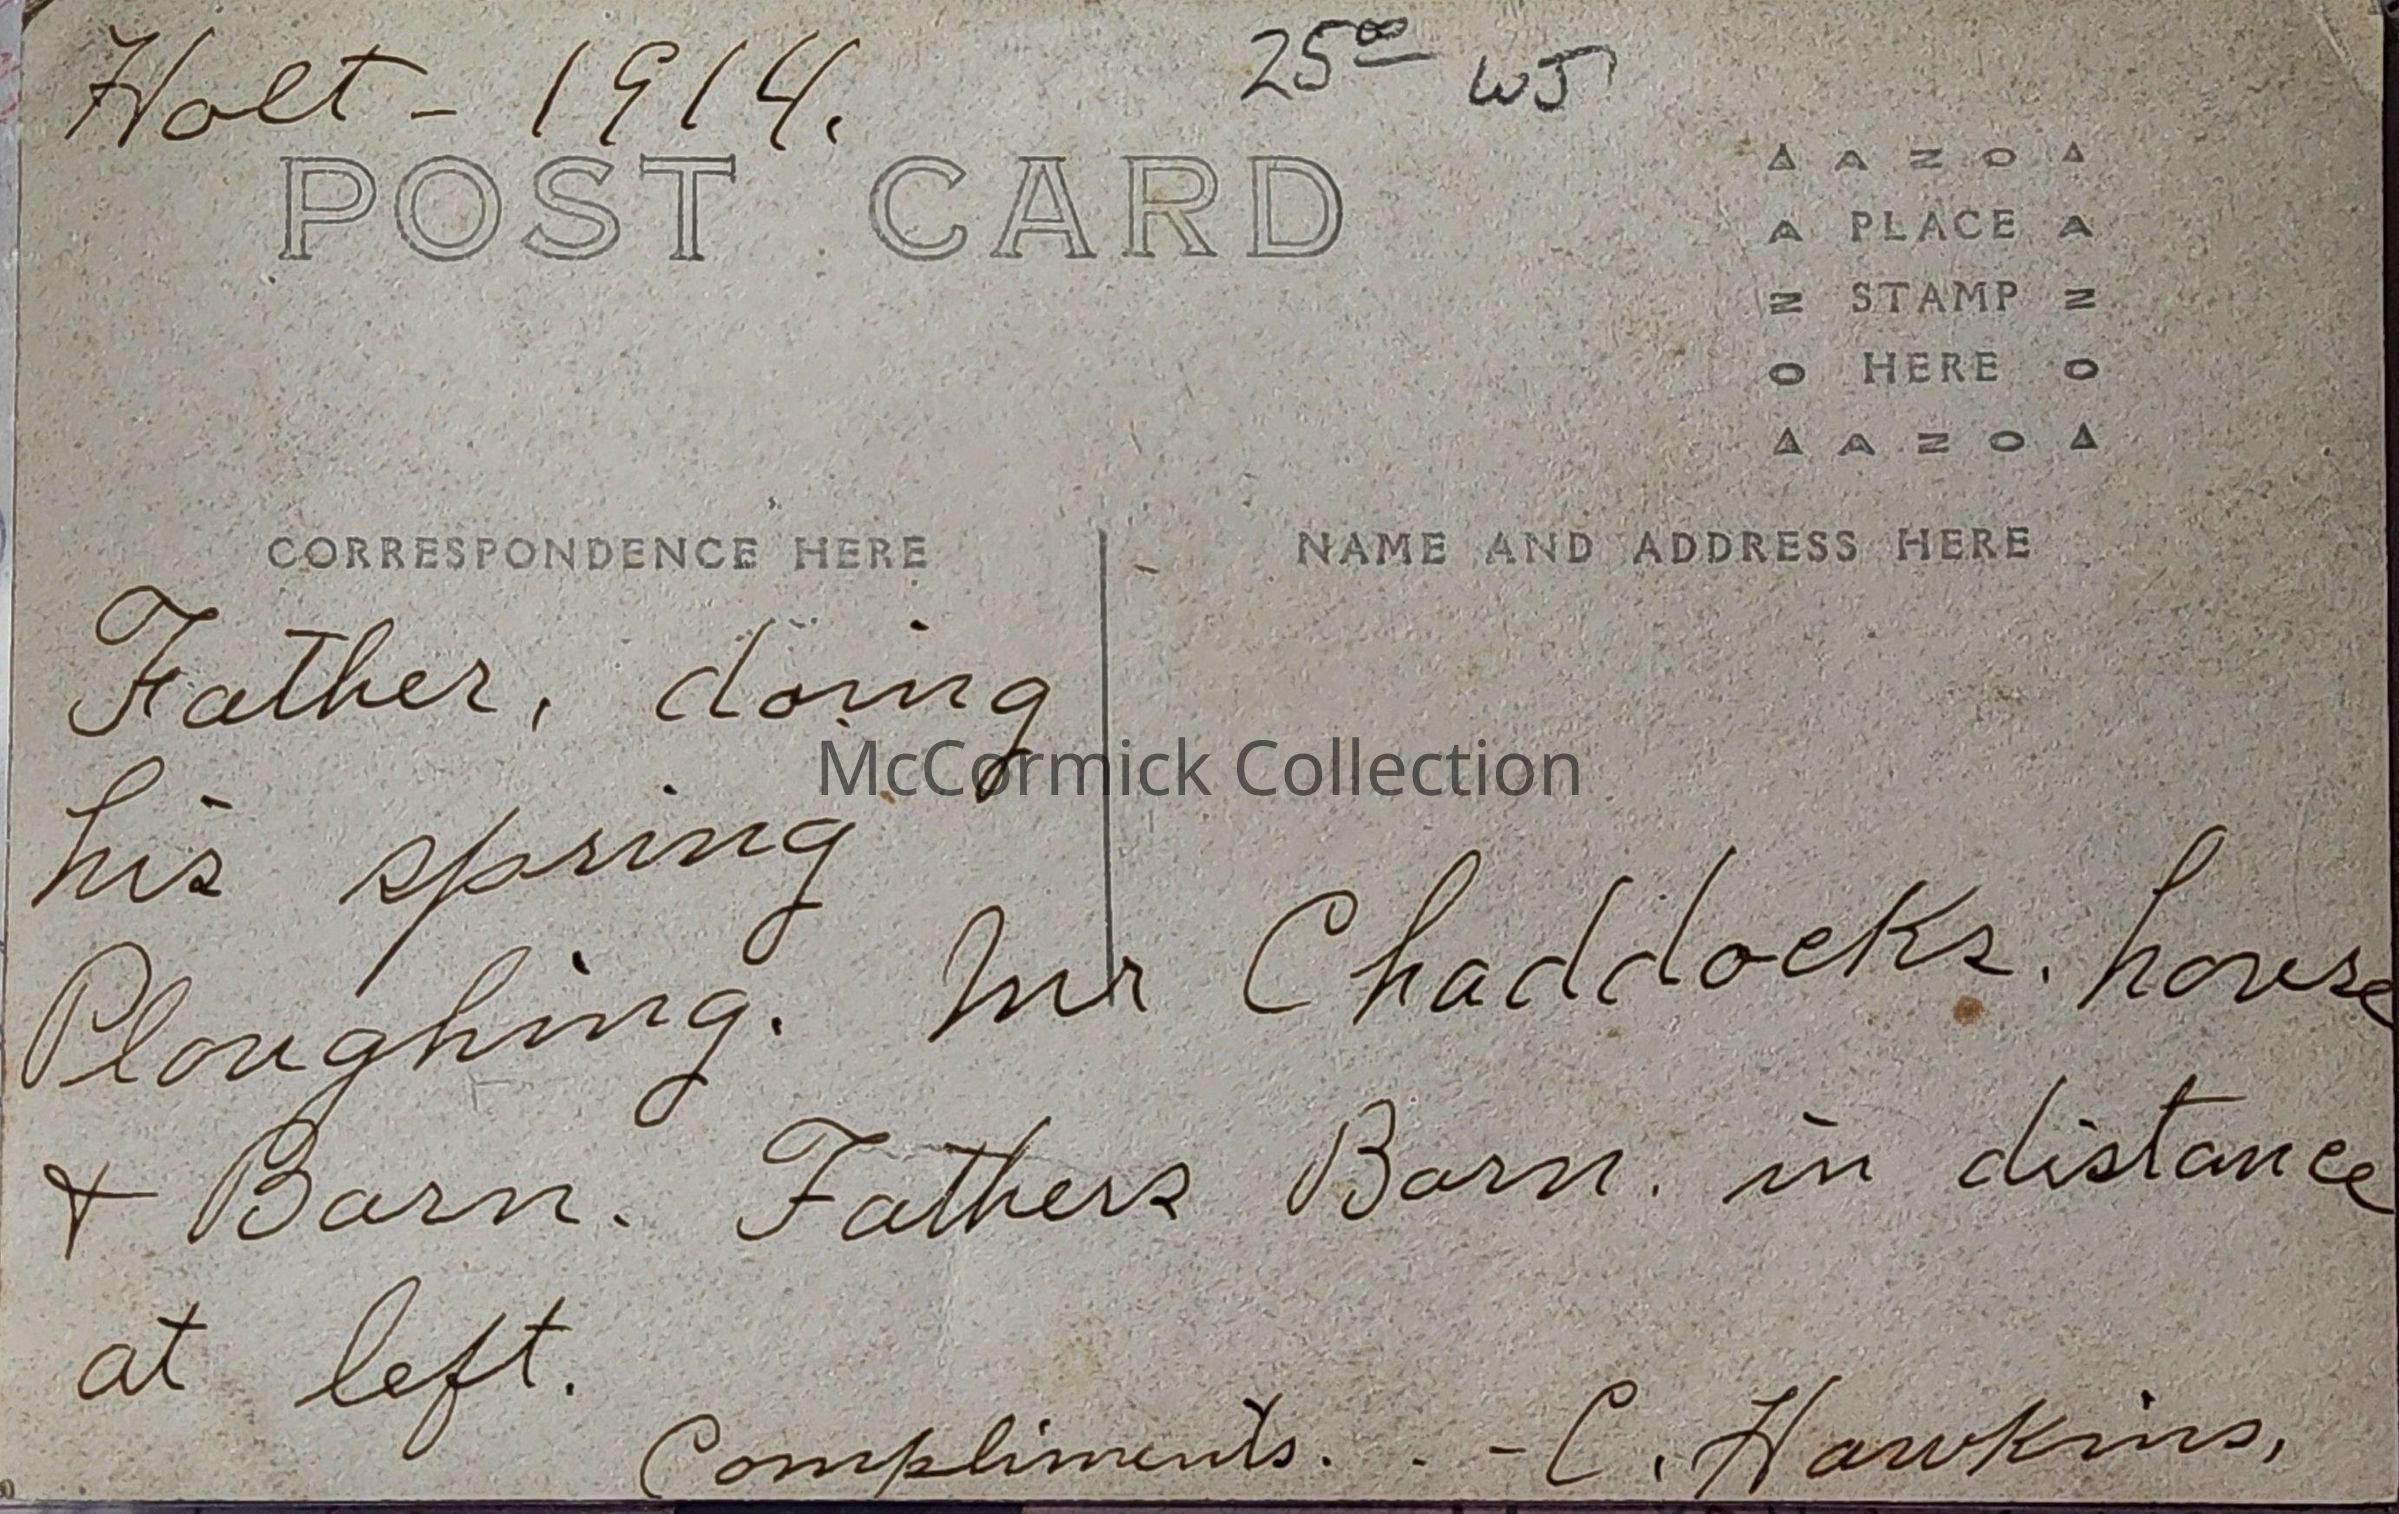 Holt - 1914.
25⁰⁰ WJ
POST CARD
AZO
A PLACE A
Z STAMP Z
O HERE O
AZO
CORRESPONDENCE HERE
NAME AND ADDRESS HERE
Father, doing
his spring
Ploughing. Mr Chaddocks. house
+ Barn. Fathers Barn. in distance
at left.
Compliments. . - C. Hawkins,
McCormick Collection